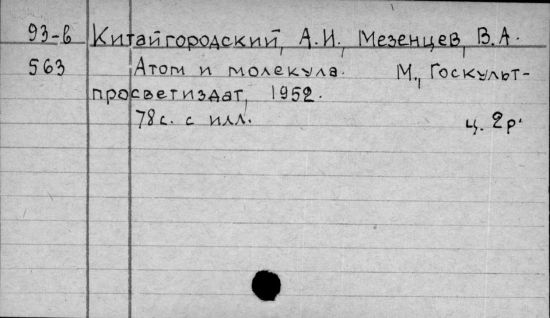 93-в Китайгородский, А.И., Мезенцев, В.А.
563 Атом и молекула. М., Госкульт-
просветиздат, 1952.
78с. с илл. ц. 2р.